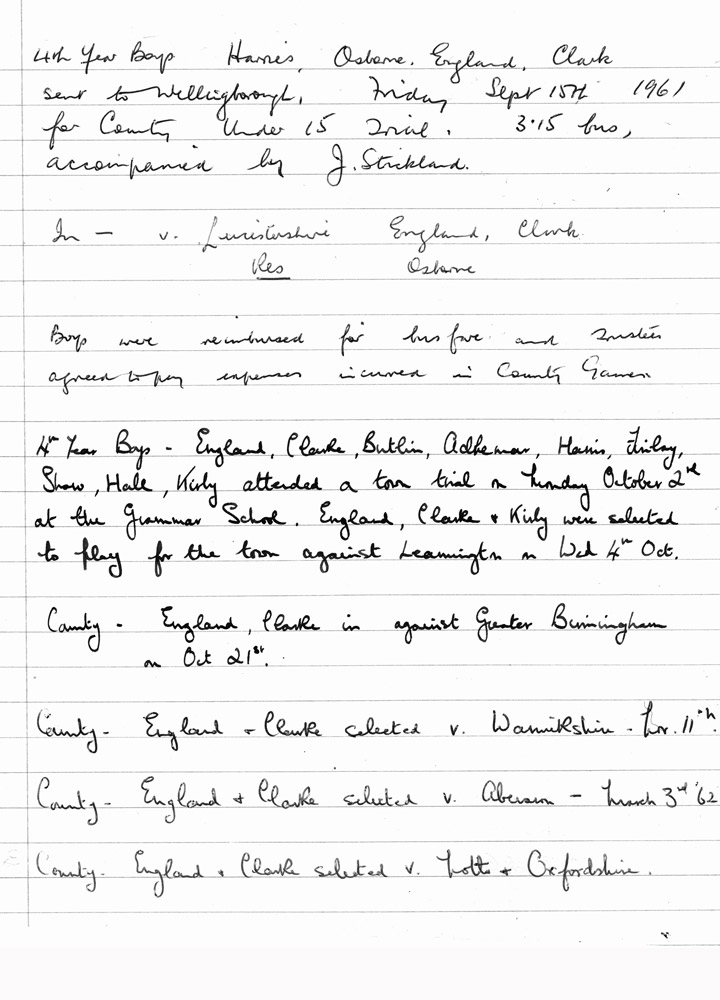 4th Year Boys Harris, Osborne. England, Clark
sent to Wellingborough, Friday Sept 15th 1961
for County Under 15 Trial. 3.15 bus,
accompanied by J. Strickland.
In - v. Leicestershire England, Clark
Res Osborne
Boys were reimbursed for bus fare and Trustees
agreed to pay expenses incurred in County Games.
4th Year Boys - England, Clarke, Butlin, Adkemar, Harris,
Shaw, Hall, Kirby attended a town trial on Monday October 2nd
at the Grammar School. England, Clarke + Kirby were selected
to play for the town against Leamington on Wed 4th Oct.
County - England, Clarke in against Greater Birmingham
on Oct 21st.
County - England + Clarke selected v. Warwickshire - Nov. 11th.
County - England + Clarke selected v. - March 3rd '62
County. England + Clarke selected v. Notts + Oxfordshire.